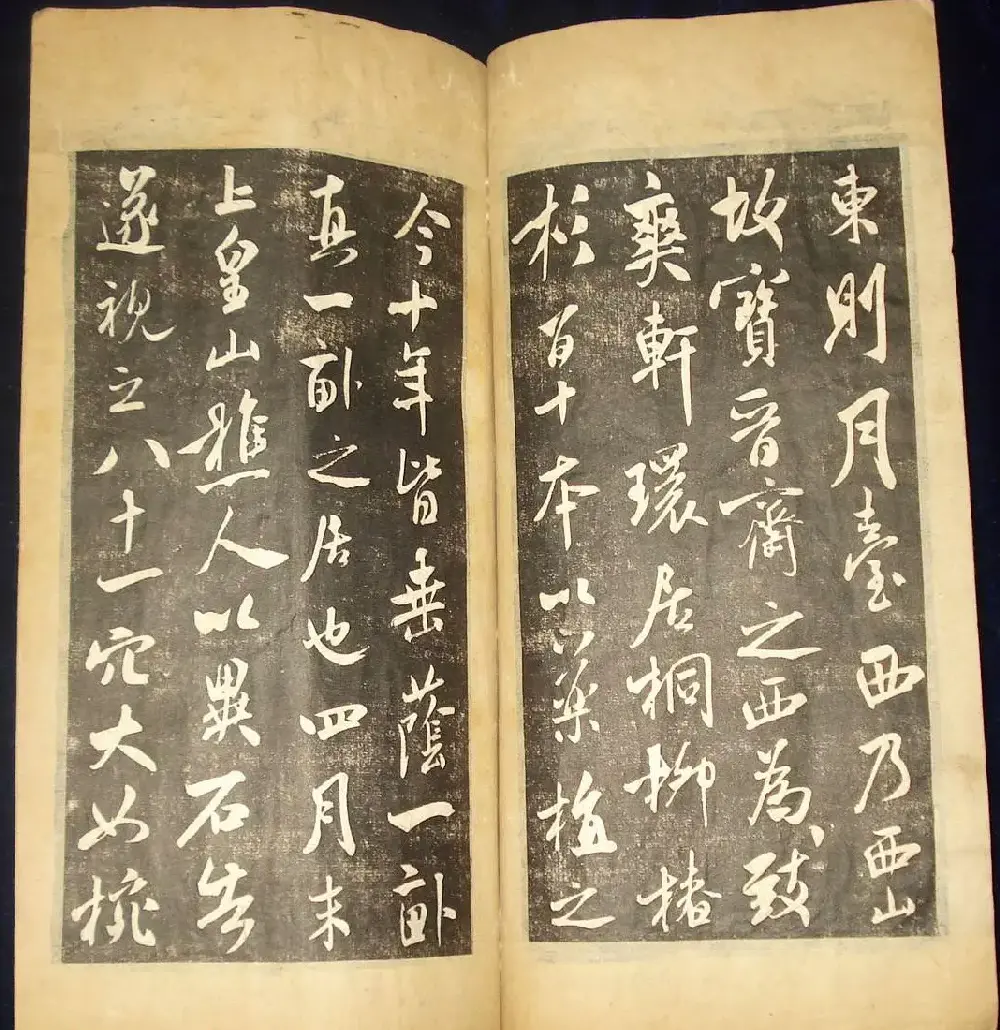 東則月臺西乃西山
故寶晉齋之西為致
爽軒環居桐柳椿
杉百十本以藥植之
今十年皆垂蔭一畝
真一畝之居也四月末
上皇山樵人以異石告
遂視之八十一穴大如椀